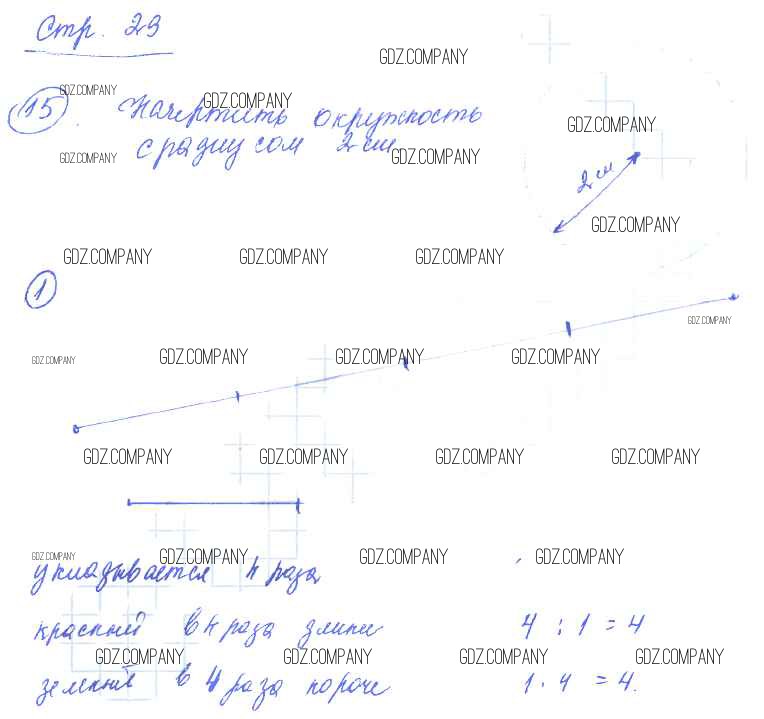 Стр. 29
GDZ.COMPANY
GDZ.COMPANY GDZ.COMPANY
15. Начертить окружность GDZ.COMPANY
с радиусом 2 см
GDZ.COMPANY GDZ.COMPANY
2 см
GDZ.COMPANY
GDZ.COMPANY GDZ.COMPANY GDZ.COMPANY
1
GDZ.COMPANY
GDZ.COMPANY GDZ.COMPANY GDZ.COMPANY GDZ.COMPANY
GDZ.COMPANY GDZ.COMPANY GDZ.COMPANY GDZ.COMPANY
GDZ.COMPANY GDZ.COMPANY GDZ.COMPANY GDZ.COMPANY
укладывается 4 раза
красный в 4 раза длинн 4 : 1 = 4
GDZ.COMPANY GDZ.COMPANY GDZ.COMPANY GDZ.COMPANY
зеленый в 4 раза короче 1 · 4 = 4.